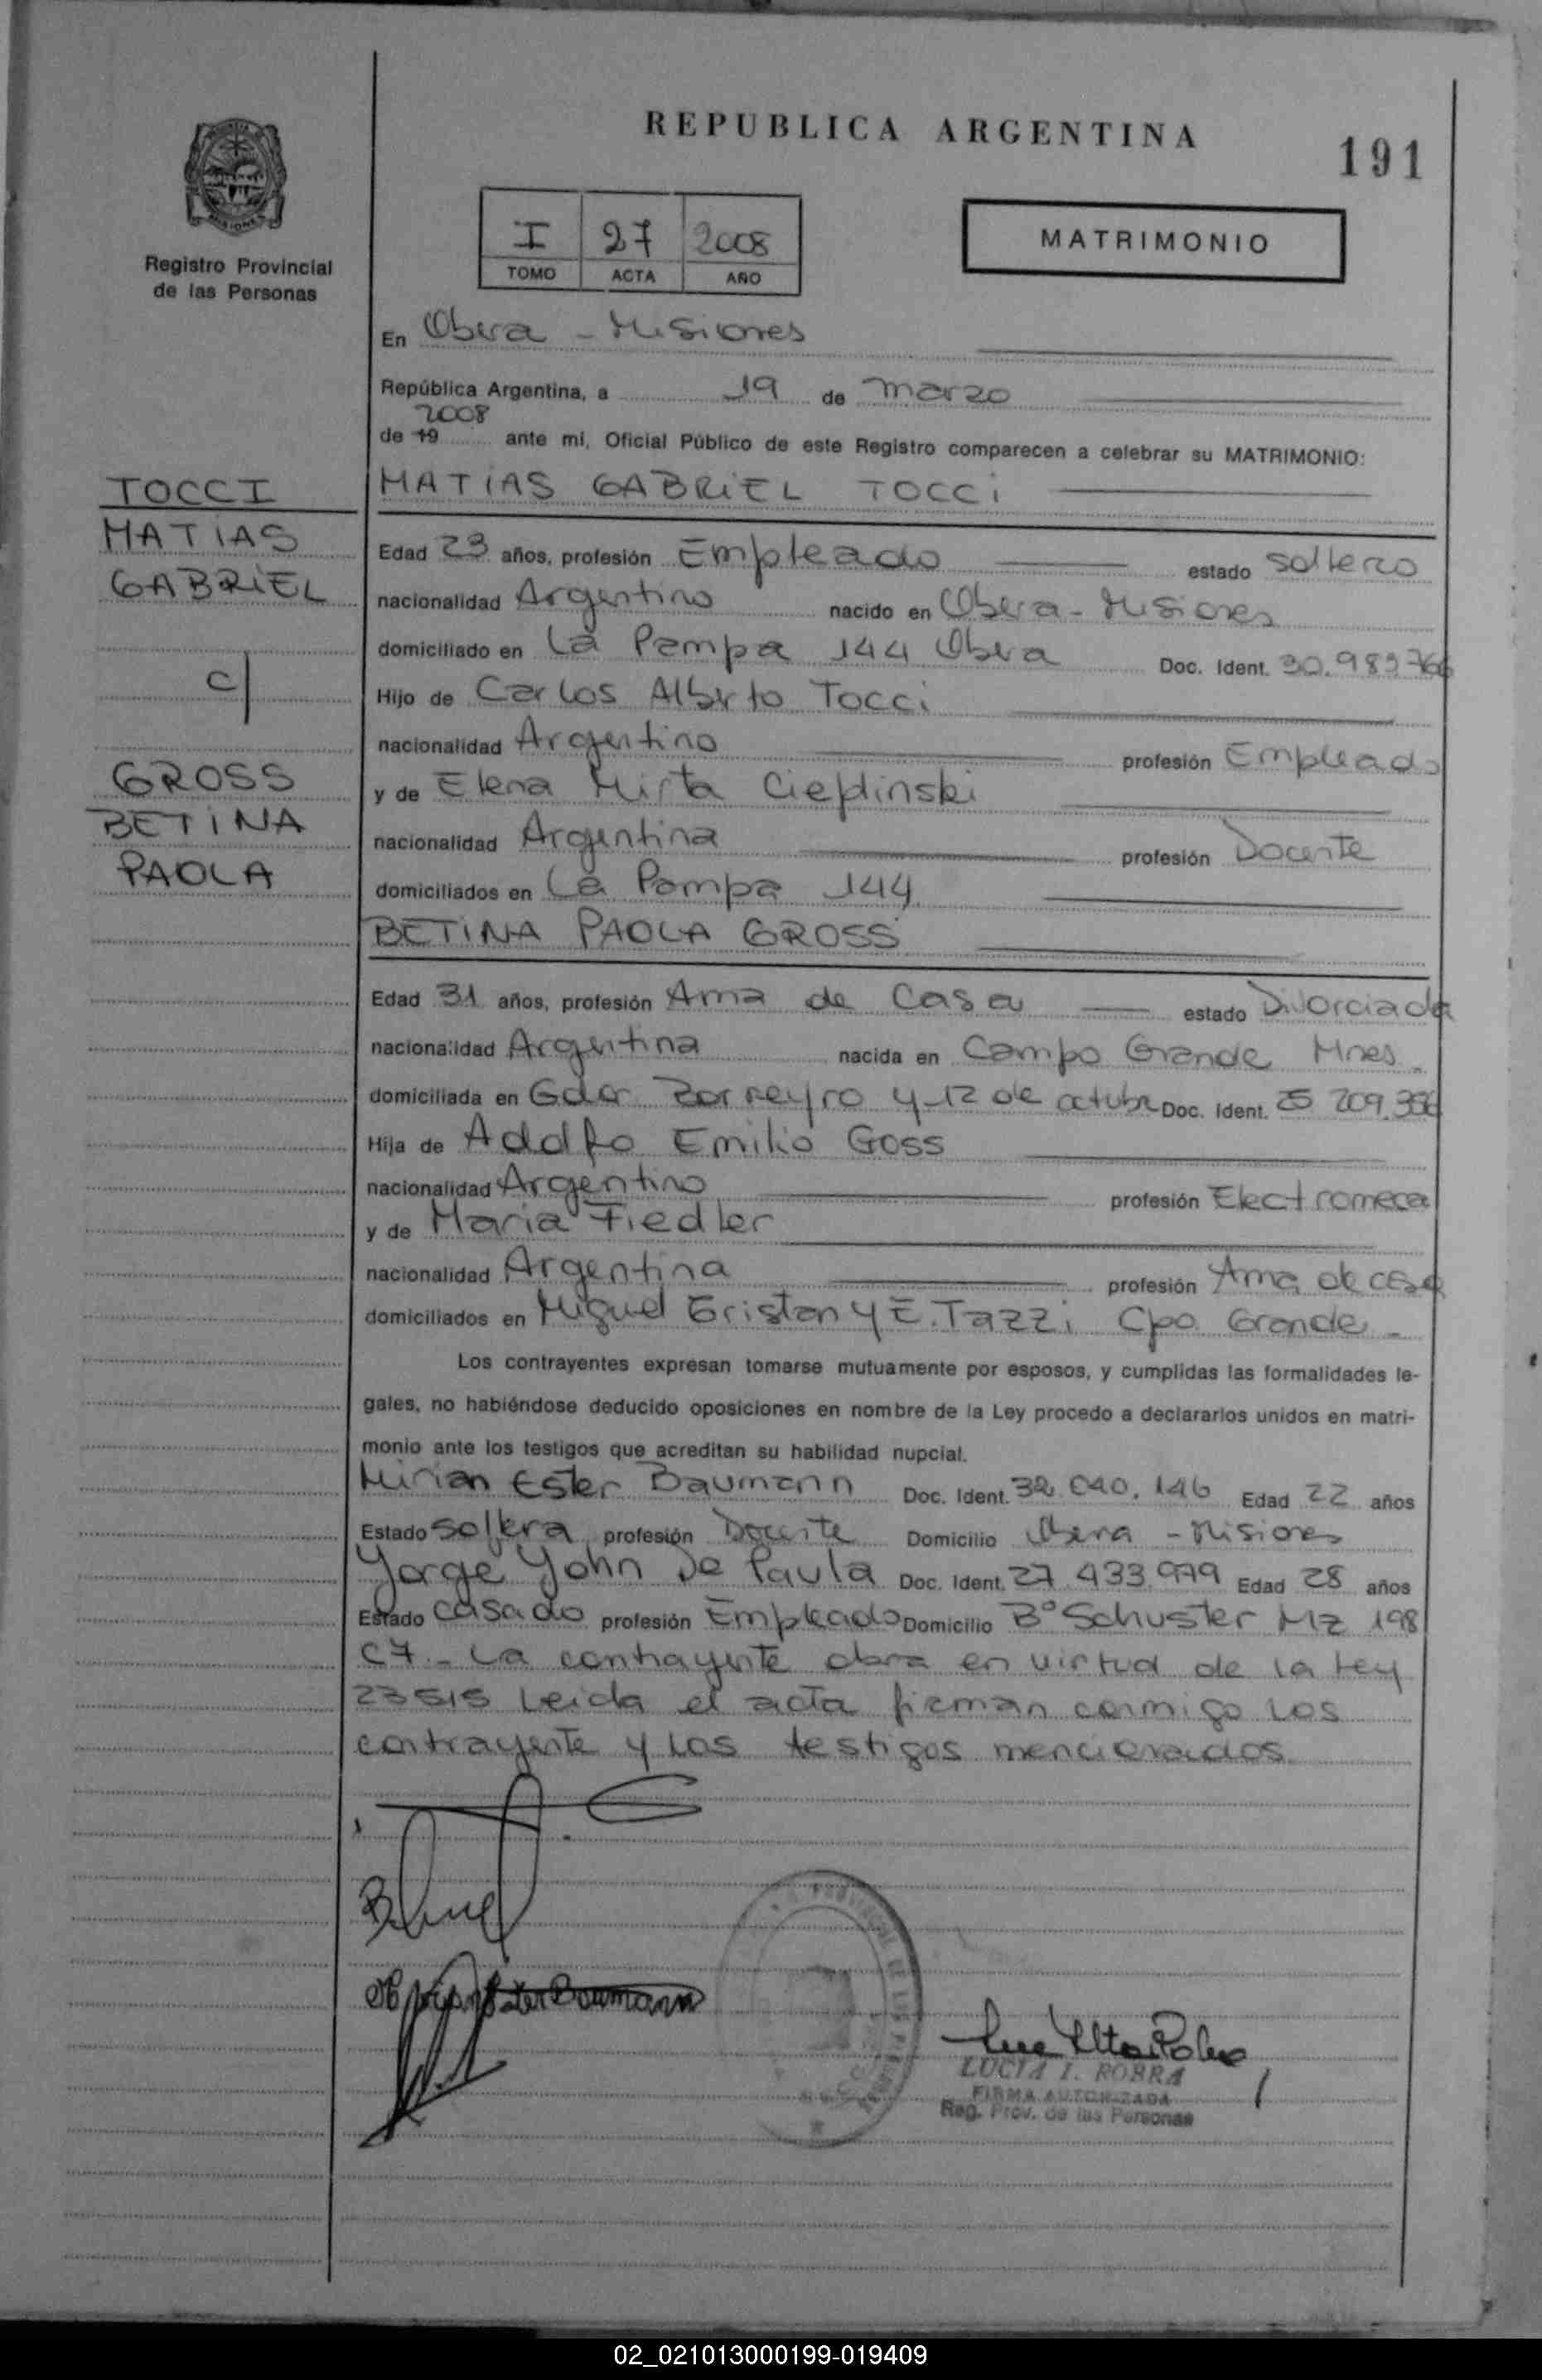 REPUBLICA ARGENTINA
191
MISIONES
Registro Provincial
de las Personas
I 27 2008
TOMO ACTA AÑO
MATRIMONIO
En Obera - Misiones
República Argentina, a 19 de marzo
2008
de 19 ante mí, Oficial Público de este Registro comparecen a celebrar su MATRIMONIO:
TOCCI
MATIAS
GABRIEL
c/
GROSS
BETINA
PAOLA
MATIAS GABRIEL TOCCI
Edad 23 años, profesión Empleado estado soltero
nacionalidad Argentino nacido en Obera - Misiones
domiciliado en La Pampa 144 Obera Doc. Ident. 30.983766
Hijo de Carlos Alberto Tocci
nacionalidad Argentino profesión Empleado
y de Elena Mirta Cieplinski
nacionalidad Argentina profesión Docente
domiciliados en La Pampa 144
BETINA PAOLA GROSS
Edad 31 años, profesión Ama de Casa estado Divorciada
nacionalidad Argentina nacida en Campo Grande Mnes.
domiciliada en Gdor Barreyro y 12 de octubre Doc. Ident. 25 209.356
Hija de Adolfo Emilio Goss
nacionalidad Argentino profesión Electromeca
y de Maria Fiedler
nacionalidad Argentina profesión Ama de casa
domiciliados en Miguel Gristan y E. Tazzi Cpo. Grande -
Los contrayentes expresan tomarse mutuamente por esposos, y cumplidas las formalidades le-
gales, no habiéndose deducido oposiciones en nombre de la Ley procedo a declararlos unidos en matri-
monio ante los testigos que acreditan su habilidad nupcial.
Mirian Ester Baumann Doc. Ident. 32.040.146 Edad 22 años
Estado soltera profesión Docente Domicilio Obera - Misiones
Yorge Yohn De Paula Doc. Ident. 27.433.979 Edad 28 años
Estado casado profesión Empleado Domicilio B° Schuster Mz 198
C7 - La contrayente obra en virtud de la Ley
23515 Leida el acta firman conmigo los
contrayente y los testigos mencionados
Ester Baumann
LUCIA I. ROBRA
FIRMA AUTORIZADA
Reg. Prov. de las Personas
02_021013000199-019409